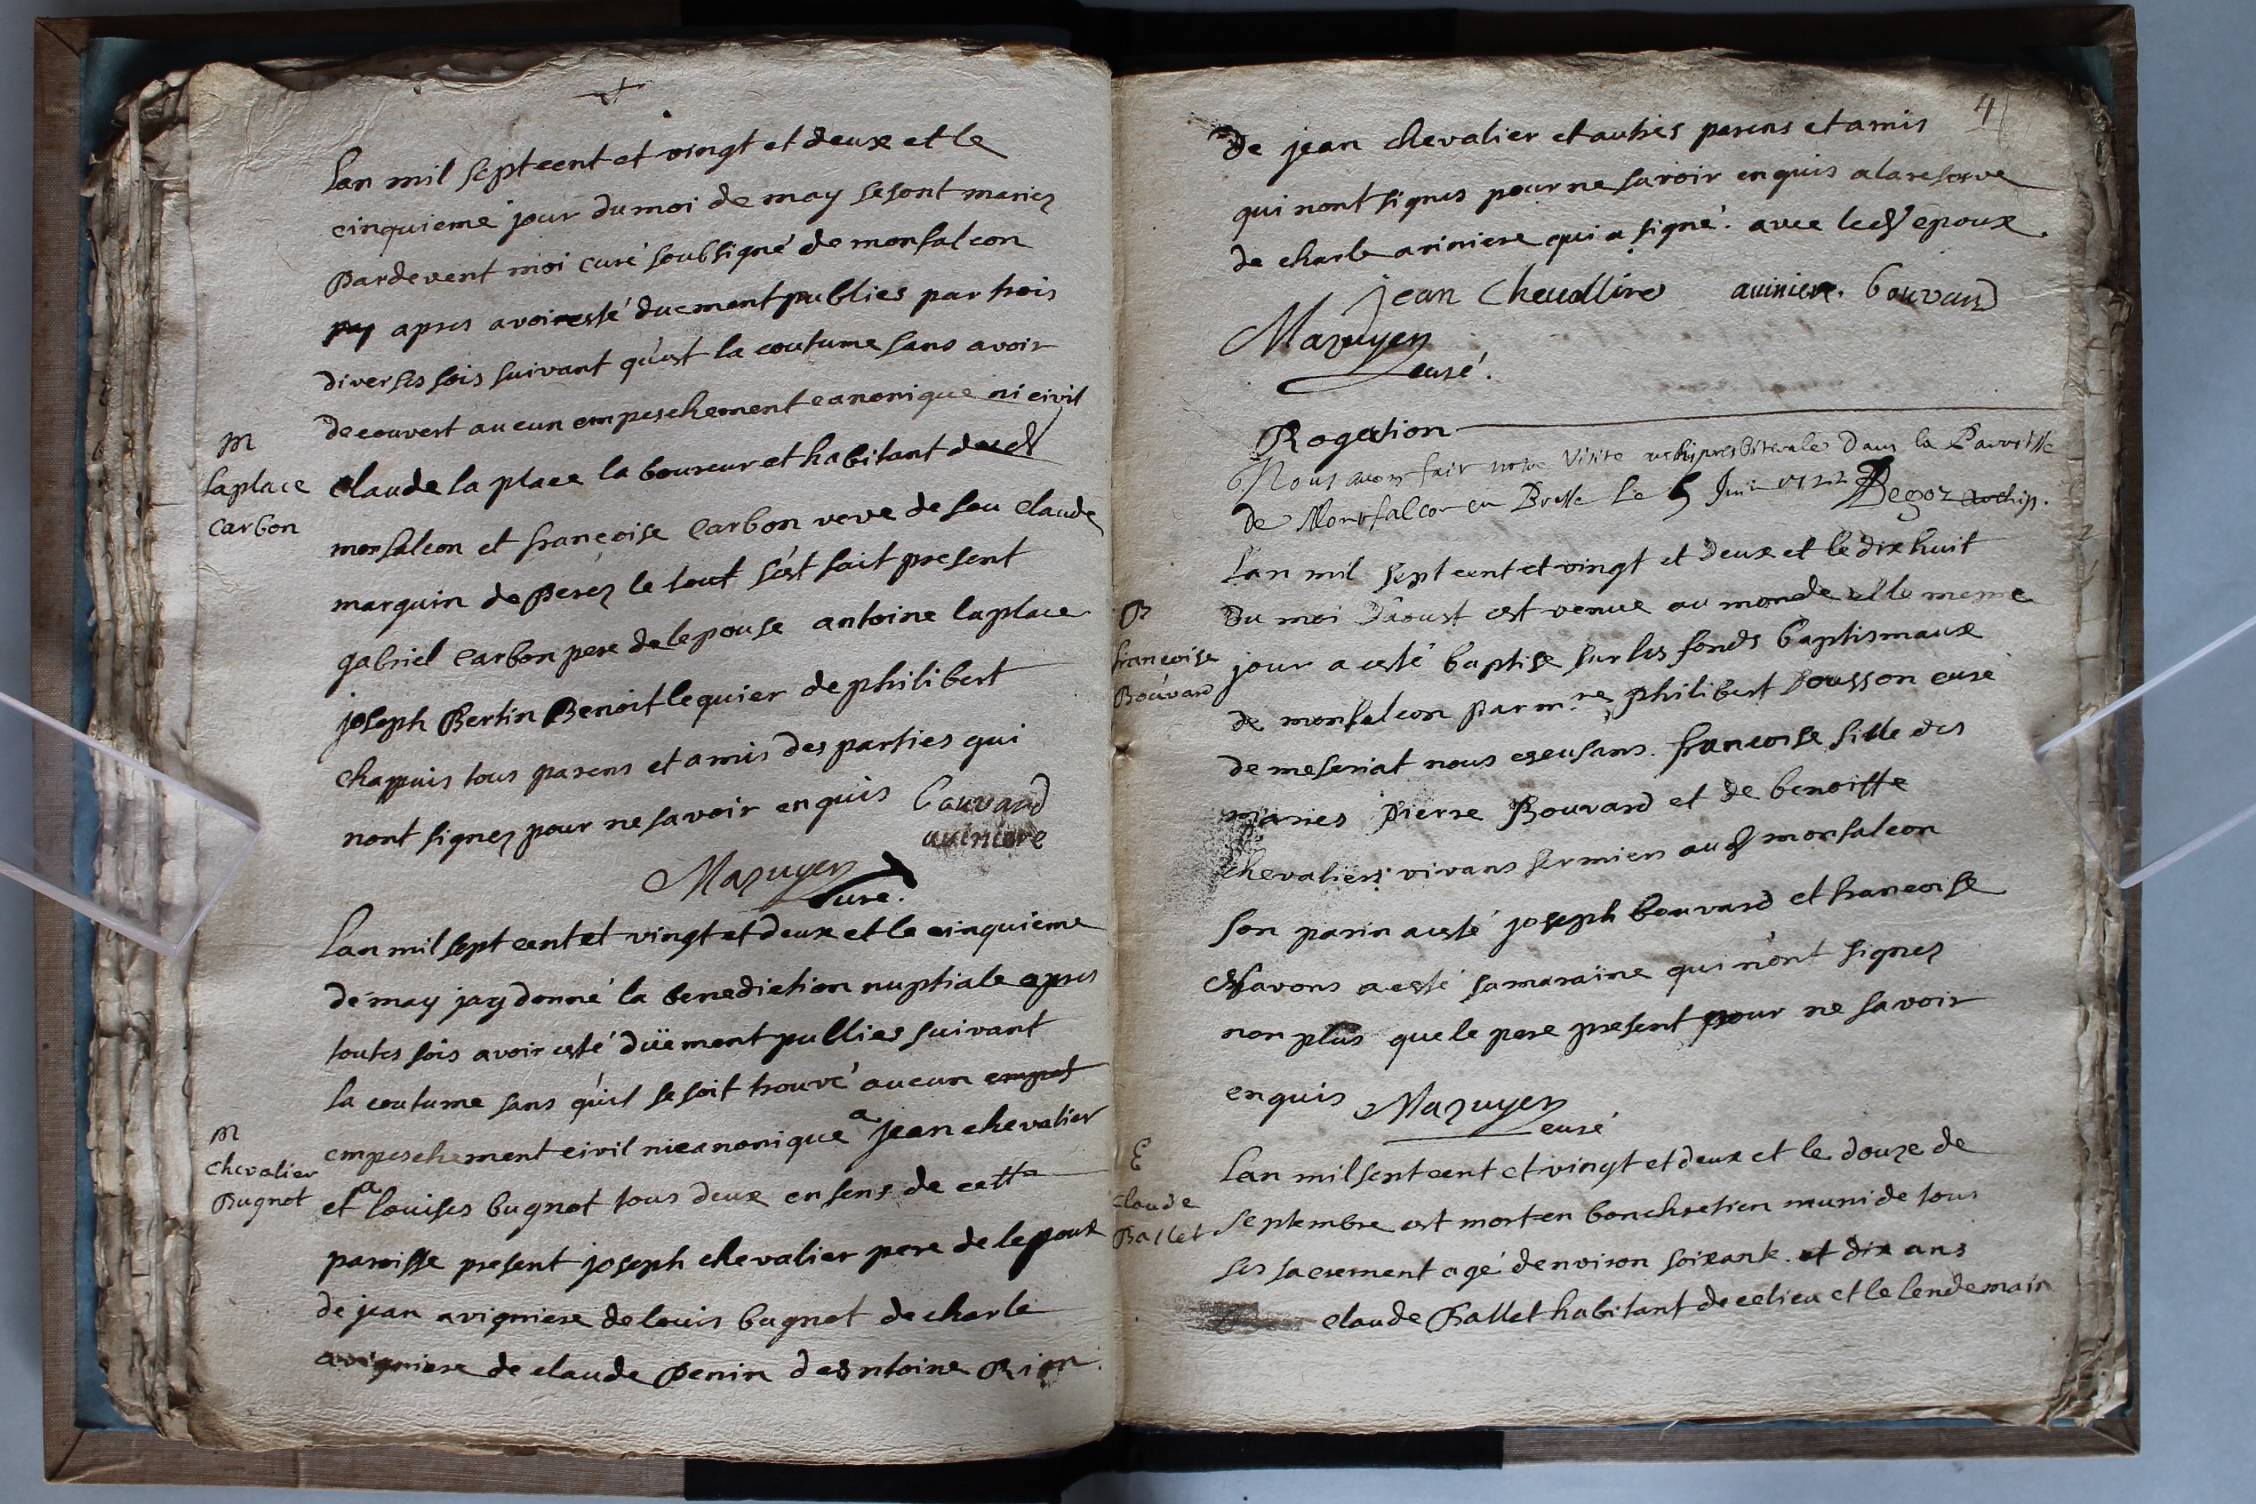 Lan mil septcent et vingt et deux et le
cinquieme jour du moi de may se sont mariez
Pardevent moi curé soubsigné de monfalcon
apres avoir esté duement publies par trois
diverses fois suivant qu'est la coutume sans avoir
decouvert aucun empeschement canonique ni civil
M
Laplace
Carbon
claude la place laboureur et habitant dud
monfalcon et francoise Carbon veve de feu claude
marquin de Perez le tout s'est fait present
gabriel Carbon pere de lepouse antoine laplace
joseph Bertin Benoit lequier de philibert
chappuis tous parens et amis des parties qui
nont signez pour ne savoir enquis Bouvard
aviniere
Mazuyer
Curé.
Lan mil sept cent et vingt et deux et le cinquieme
de may jay donné la benediction nuptiale apres
toutes fois avoir esté düement publies suivant
la coutume sans qu'il se soit trouvé aucun empes
M
Chevalier
Bugnot
empeschement civil ni canonique a jean chevalier
et a louises bugnot tous deux ensens de cette
paroisse present joseph chevalier pere de lepoux
de jean avigniere de louis bugnot de charle
avigniere de claude Penin de antoine Rion
4
De jean chevalier et autres parens et amis
qui nont signes pour ne savoir enquis a la reserve
de charle aviniere qui a signé. avec led epoux.
jean Chevallire aviniere. bouvard
Mazuyer
curé.
Rogation
Nous avons fait notre Visite archipresbiterale Dans la Parroisse
de Montfalcon en Bresse Le 5 Juin 1722 Begoz archip.
Lan mil sept cent et vingt et deux et le dix huit
B
francoise
Bouvard
Du moi D'aoust est venue au monde et le meme
jour a esté baptise sur les fonds baptismaux
de monfalcon par m.re philibert Sousson curé
de meseriat nous excusans. francoise fille des
maries Pierre Bouvard et de benoiste
chevaliers vivans fermiers aud monfalcon
son parin a esté joseph bouvard et francoise
chavons a esté sa maraine qui n'ont signez
non plus que le pere present pour ne savoir
enquis Mazuyer
curé
E
Claude
Ballet
Lan mil sept cent et vingt et deux et le douze de
septembre est mort en bon chretien muni de tous
ses sacrement agé denviron soixante et dix ans
claude Ballet habitant de ce lieu et le lendemain